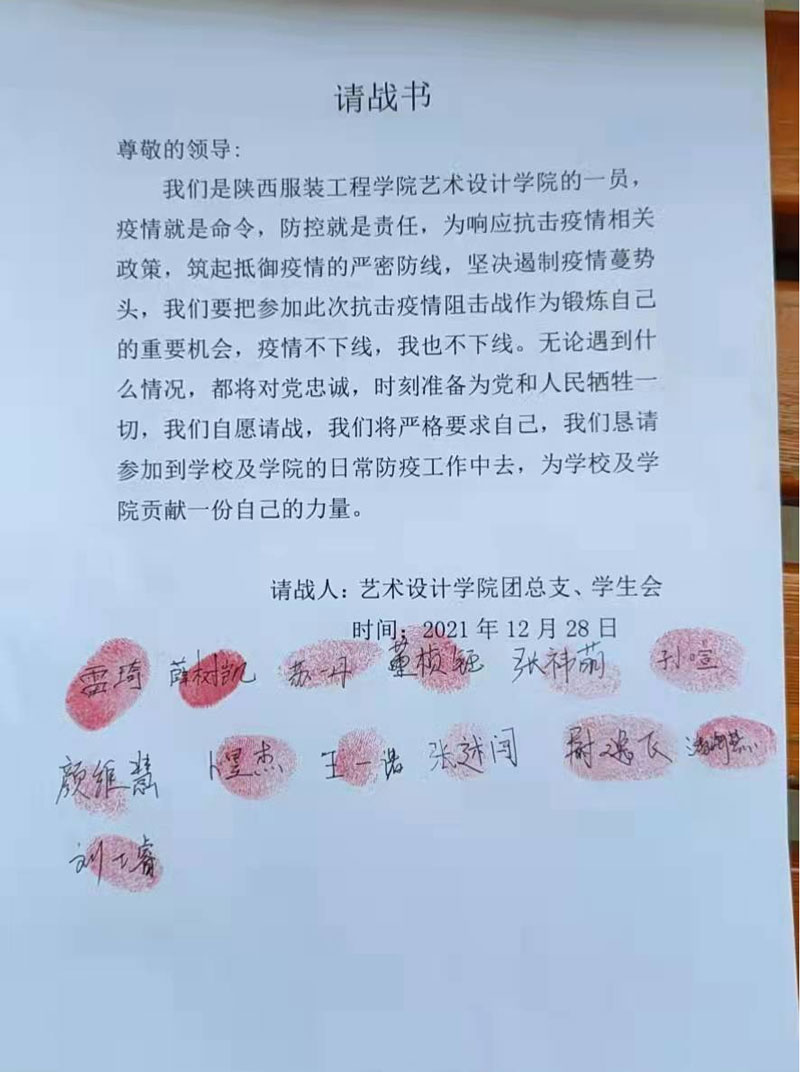 请战书
尊敬的领导:
我们是陕西服装工程学院艺术设计学院的一员，
疫情就是命令，防控就是责任，为响应抗击疫情相关
政策，筑起抵御疫情的严密防线，坚决遏制疫情蔓势
头，我们要把参加此次抗击疫情阻击战作为锻炼自己
的重要机会，疫情不下线，我也不下线。无论遇到什
么情况，都将对党忠诚，时刻准备为党和人民牺牲一
切，我们自愿请战，我们将严格要求自己，我们恳请
参加到学校及学院的日常防疫工作中去，为学校及学
院贡献一份自己的力量。
请战人：艺术设计学院团总支、学生会
时间：2021 年 12 月 28 日
雷琦 薛树凯 苏一丹 张祎萌 孙喧
颜维慧 卜昱杰 王一诺 张述闯